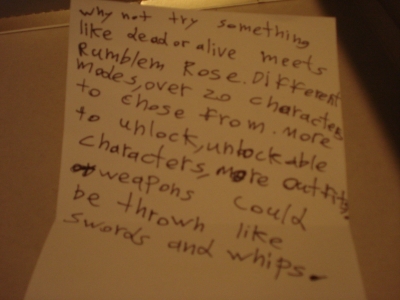 why not try something
like dead or alive meets
Rumblem Rose. Different
modes, over 20 characters
to chose from. more
to unlock, unlockable
characters, more outfits.
weapons could
be thrown like
swords and whips.